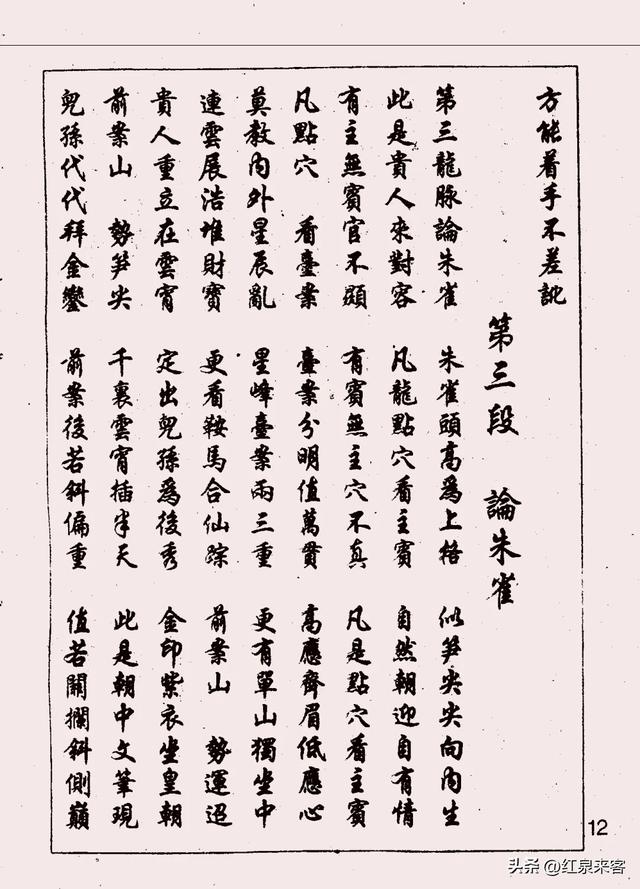 方能着手不差訛
第三段 論朱雀
第三龍脉論朱雀 朱雀頭高爲上格 似笋尖尖向内生
此是貴人來對容 凡龍點穴看主賓 自然朝迎自有情
有主無賓官不顯 有賓無主穴不真 凡是點穴看主賓
凡點穴 看臺案 臺案分明值萬貫 高應齊眉低應心
莫教内外星辰亂 星峰臺案兩三重 更有單山獨坐中
連雲展浩堆財寶 更看鞍馬合仙踪 前案山 勢運迢
貴人重立在雲霄 定出兒孫爲後秀 金印紫衣坐皇朝
前案山 勢笋尖 千裏雲霄插半天 此是朝中文筆現
兒孫代代拜金鑾 前案後若斜偏重 值若關攔斜側巔
12
头条 @红泉来客